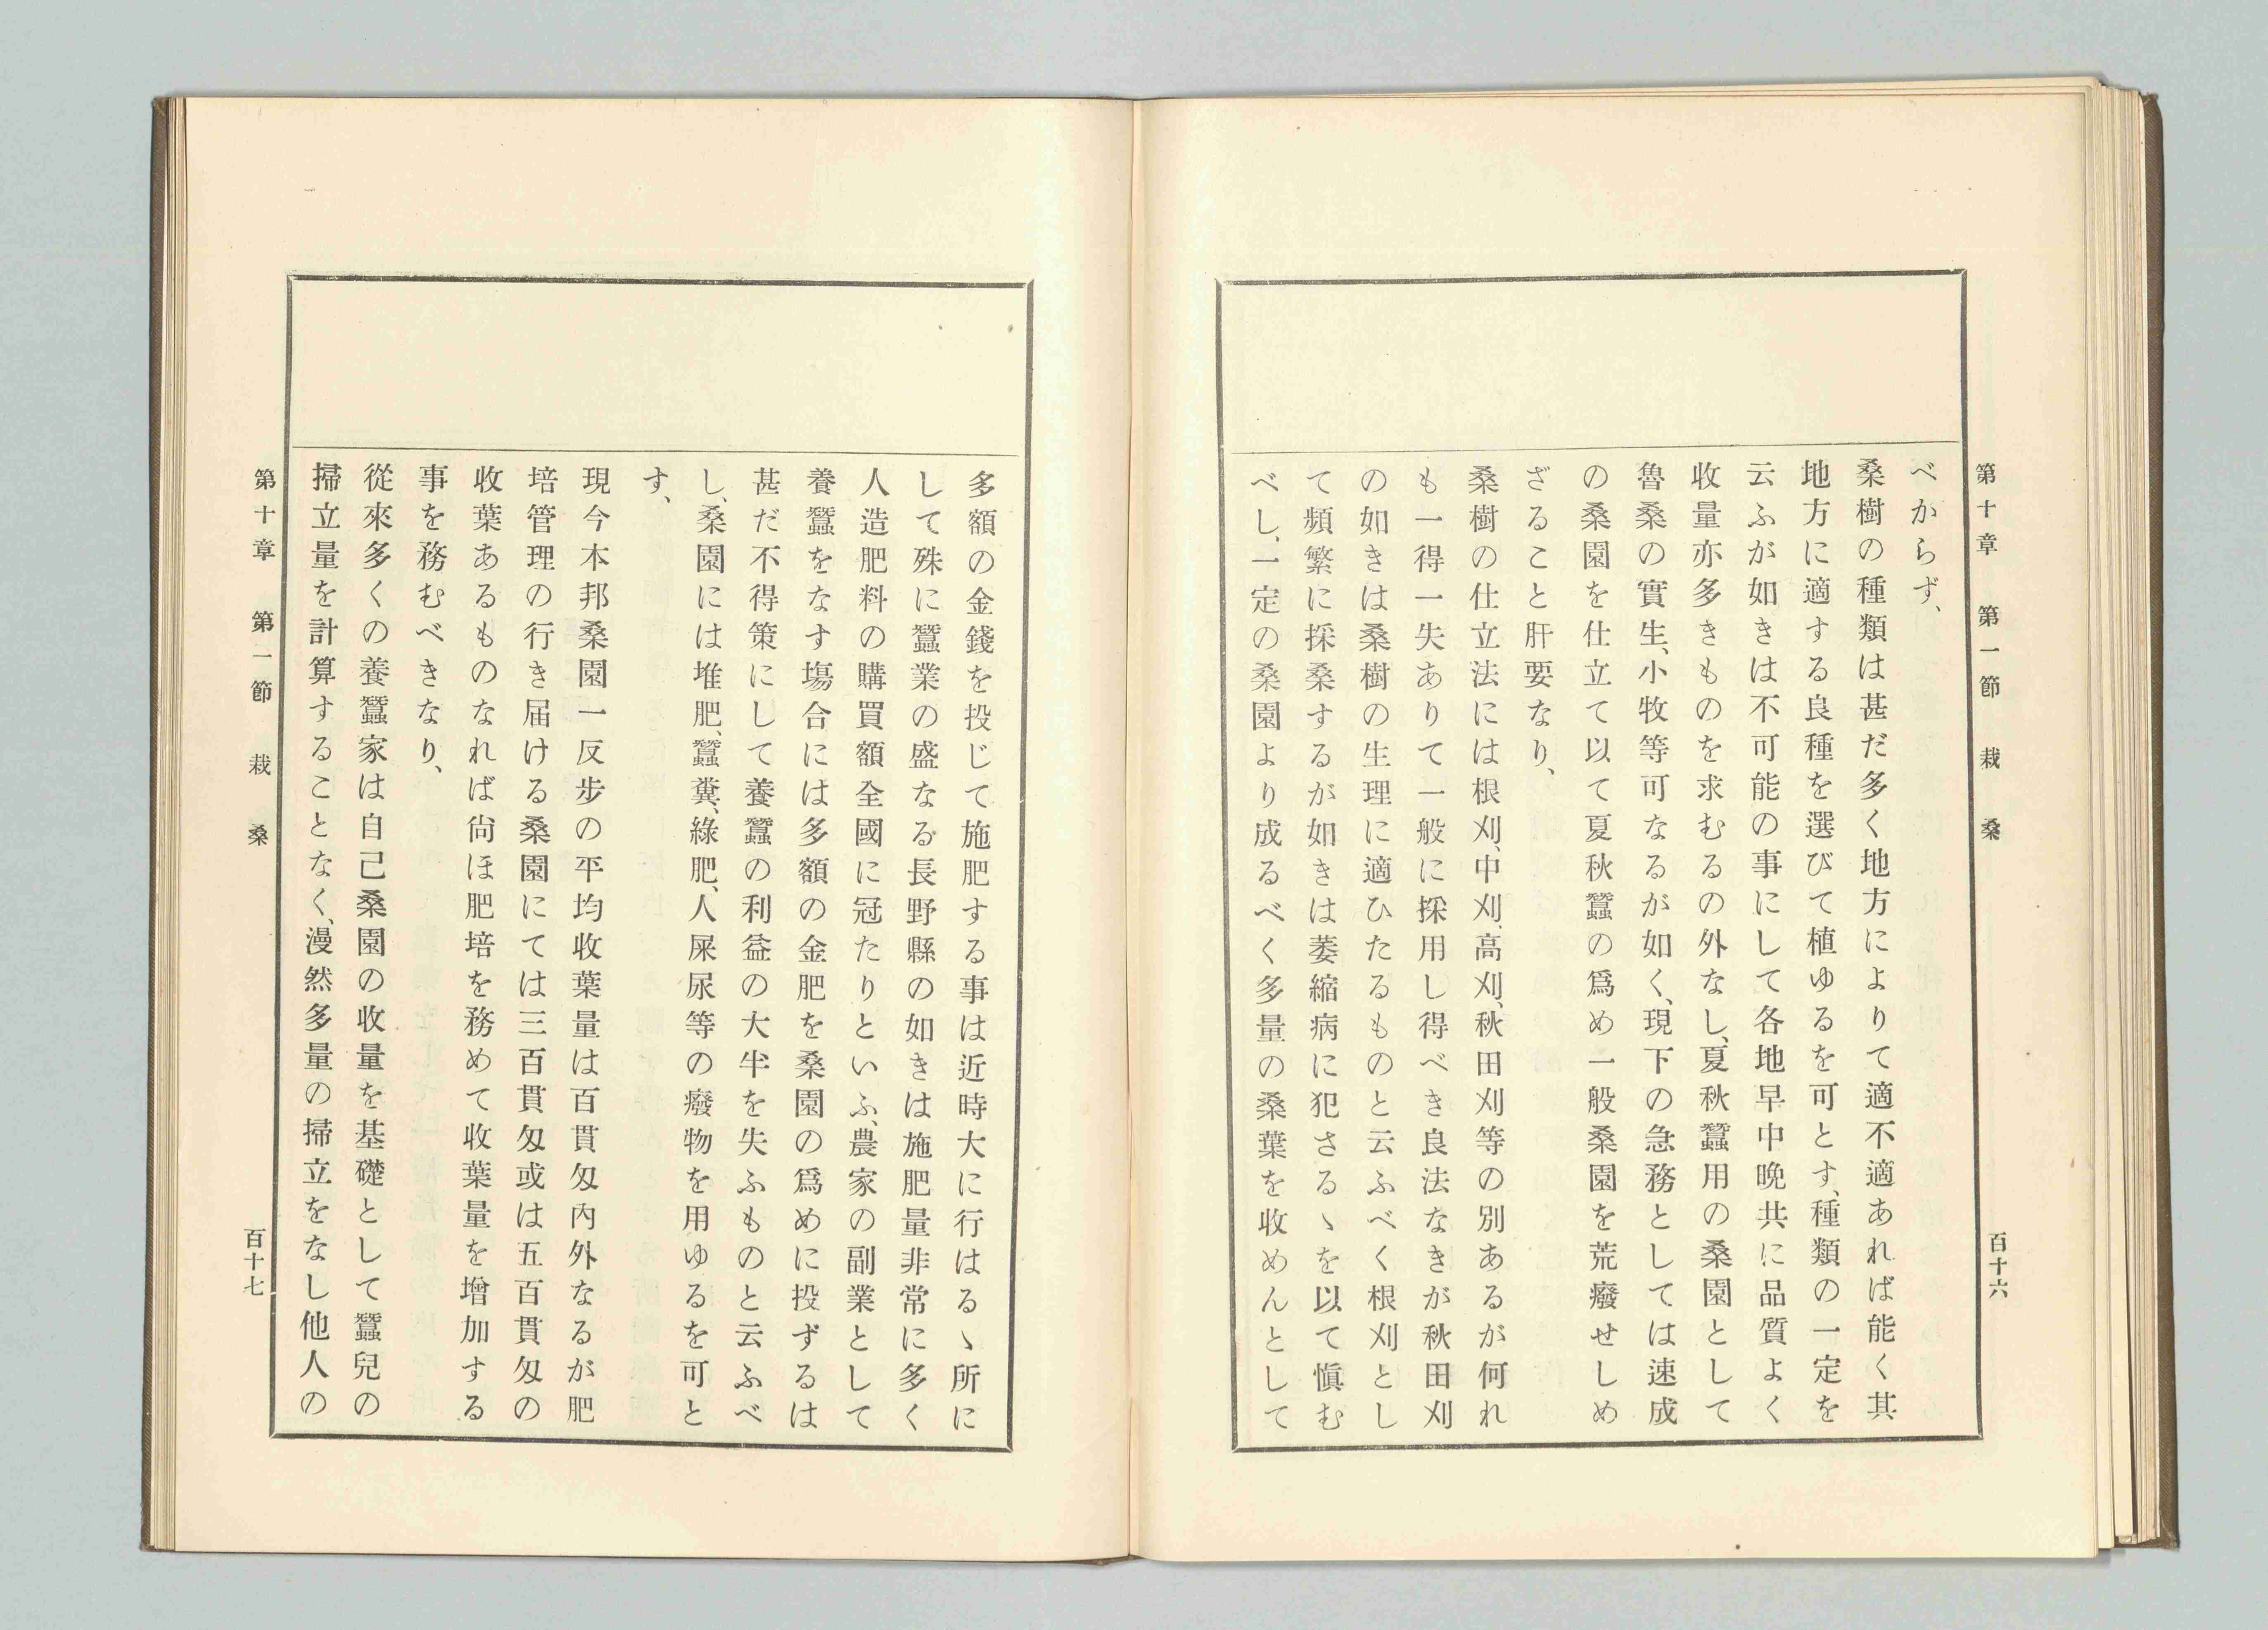 第十章　第一節　栽　桑　百十六
べからず、
桑樹の種類は甚だ多く地方によりて適不適あれば能く其
地方に適する良種を選びて植ゆるを可とす、種類の一定を
云ふが如きは不可能の事にして各地早中晩共に品質よく
收量亦多きものを求むるの外なし、夏秋蠶用の桑園として
魯桑の實生、小牧等可なるが如く、現下の急務としては速成
の桑園を仕立て以て夏秋蠶の爲め一般桑園を荒廢せしめ
ざること肝要なり、
桑樹の仕立法には根刈、中刈、高刈、秋田刈等の別あるが何れ
も一得一失ありて一般に採用し得べき良法なきが秋田刈
の如きは桑樹の生理に適ひたるものと云ふべく根刈とし
て頻繁に採桑するが如きは萎縮病に犯さるゝを以て愼む
べし、一定の桑園より成るべく多量の桑葉を收めんとして
多額の金錢を投じて施肥する事は近時大に行はるゝ所に
して殊に蠶業の盛なる長野縣の如きは施肥量非常に多く
人造肥料の購買額全國に冠たりといふ、農家の副業として
養蠶をなす塲合には多額の金肥を桑園の爲めに投ずるは
甚だ不得策にして養蠶の利益の大半を失ふものと云ふべ
し、桑園には堆肥、蠶糞、綠肥、人屎尿等の廢物を用ゆるを可と
す、
現今本邦桑園一反步の平均收葉量は百貫匁內外なるが肥
培管理の行き届ける桑園にては三百貫匁或は五百貫匁の
收葉あるものなれば尙ほ肥培を務めて收葉量を增加する
事を務むべきなり、
從來多くの養蠶家は自己桑園の收量を基礎として蠶兒の
掃立量を計算することなく、漫然多量の掃立をなし他人の
第十章　第一節　栽　桑　百十七